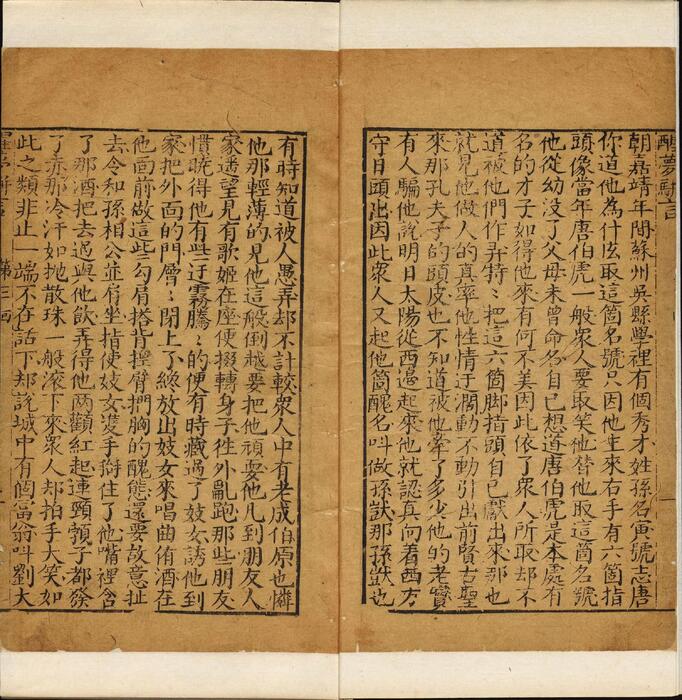 醒夢駢言
朝嘉靖年間蘇州吳縣學裡有個秀才姓孫名寅號志唐
你道他為什庅取這箇名號只因他生來右手有六箇指
頭像當年唐伯虎一般衆人要取笑他替他取這箇名號
他從幼没了父母未曾命名自己想道唐伯虎是本處有
名的才子如得他來有何不美因此依了衆人所取却不
道被他們作弄特〻把這六箇脚指頭自己獻出來那也
就見他做人的真率他性情迂濶動不動引出前賢古聖
來那孔夫子的頭皮也不知道被他牽了多少他的老實
有人騙他說明日太陽從西邉起來他就認真向着西方
守日頭出因此衆人又起他箇醜名叫做孫獃那孫獃也
有時知道被人愚弄却不計較衆人中有老成伯原也憐
他那輕薄的見他這般倒越要把他頑耍他凡到朋友人
家遙望見有歌姬在座便掇轉身子徃外亂跑那些朋友
慣暁得他有些迂霧騰〻的便有時藏過了妓女誘他到
家把外面的門層〻閉上了纔放出妓女來唱曲侑酒在
他面前做這些勾肩搭背摸臂捫胸的醜態還要故意扯
去令和孫相公並肩坐指使妓女雙手搿住了他嘴裡含
了那酒把去過與他飲弄得他兩顴紅起連頸頟子都發
了赤那冷汗如抛散珠一般滚下來衆人却拍手大笑如
此之類非止一端不在話下却說城中有個富翁叫劉大
醒夢駢言
第三回